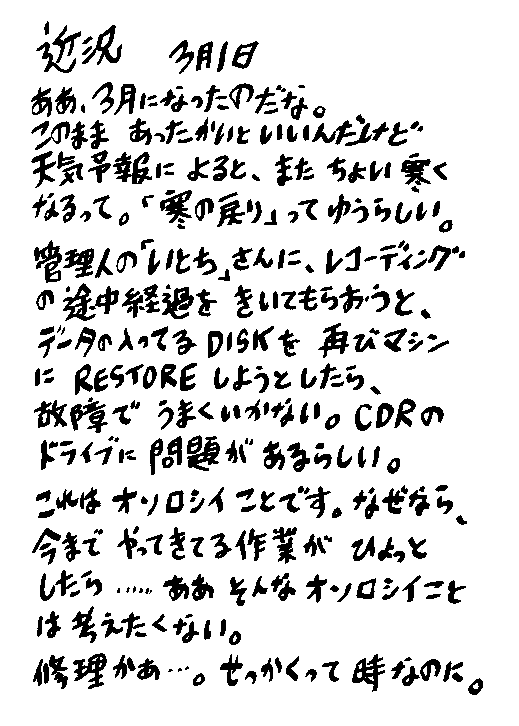 近況 3月1日
ああ、3月になったのだな。
このまま あったかいといいんだけど
天気予報によると、また ちょい寒く
なるって。「寒の戻り」ってゆうらしい。
管理人の「いとち」さんに、レコーディング
の途中経過を きいてもらおうと、
データの入ってる DISKを 再びマシン
に RESTORE しようとしたら、
故障で うまくいかない。CDRの
ドライブに 問題が あるらしい。
これは オソロシイ ことです。なぜなら、
今まで やってきてる作業が ひょっと
したら…‥ ああ そんな オソロシイこと
は考えたくない。
修理かあ…。せっかくって 時なのに。